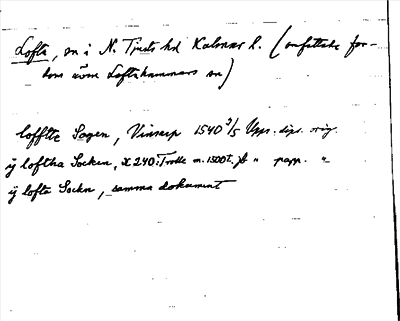 Lofta, sn i N. Tjusts hd Kalmar l. (omfattade for-
dom även Loftahammars sn)
lofftte Sogen, Vinsarp 1540 3/5 Upps. dipl. orig.
ij loftha Socken, X 240: Trolle m. 1500 t. pb " papp. "
ij lofta Sockn, samma dokument